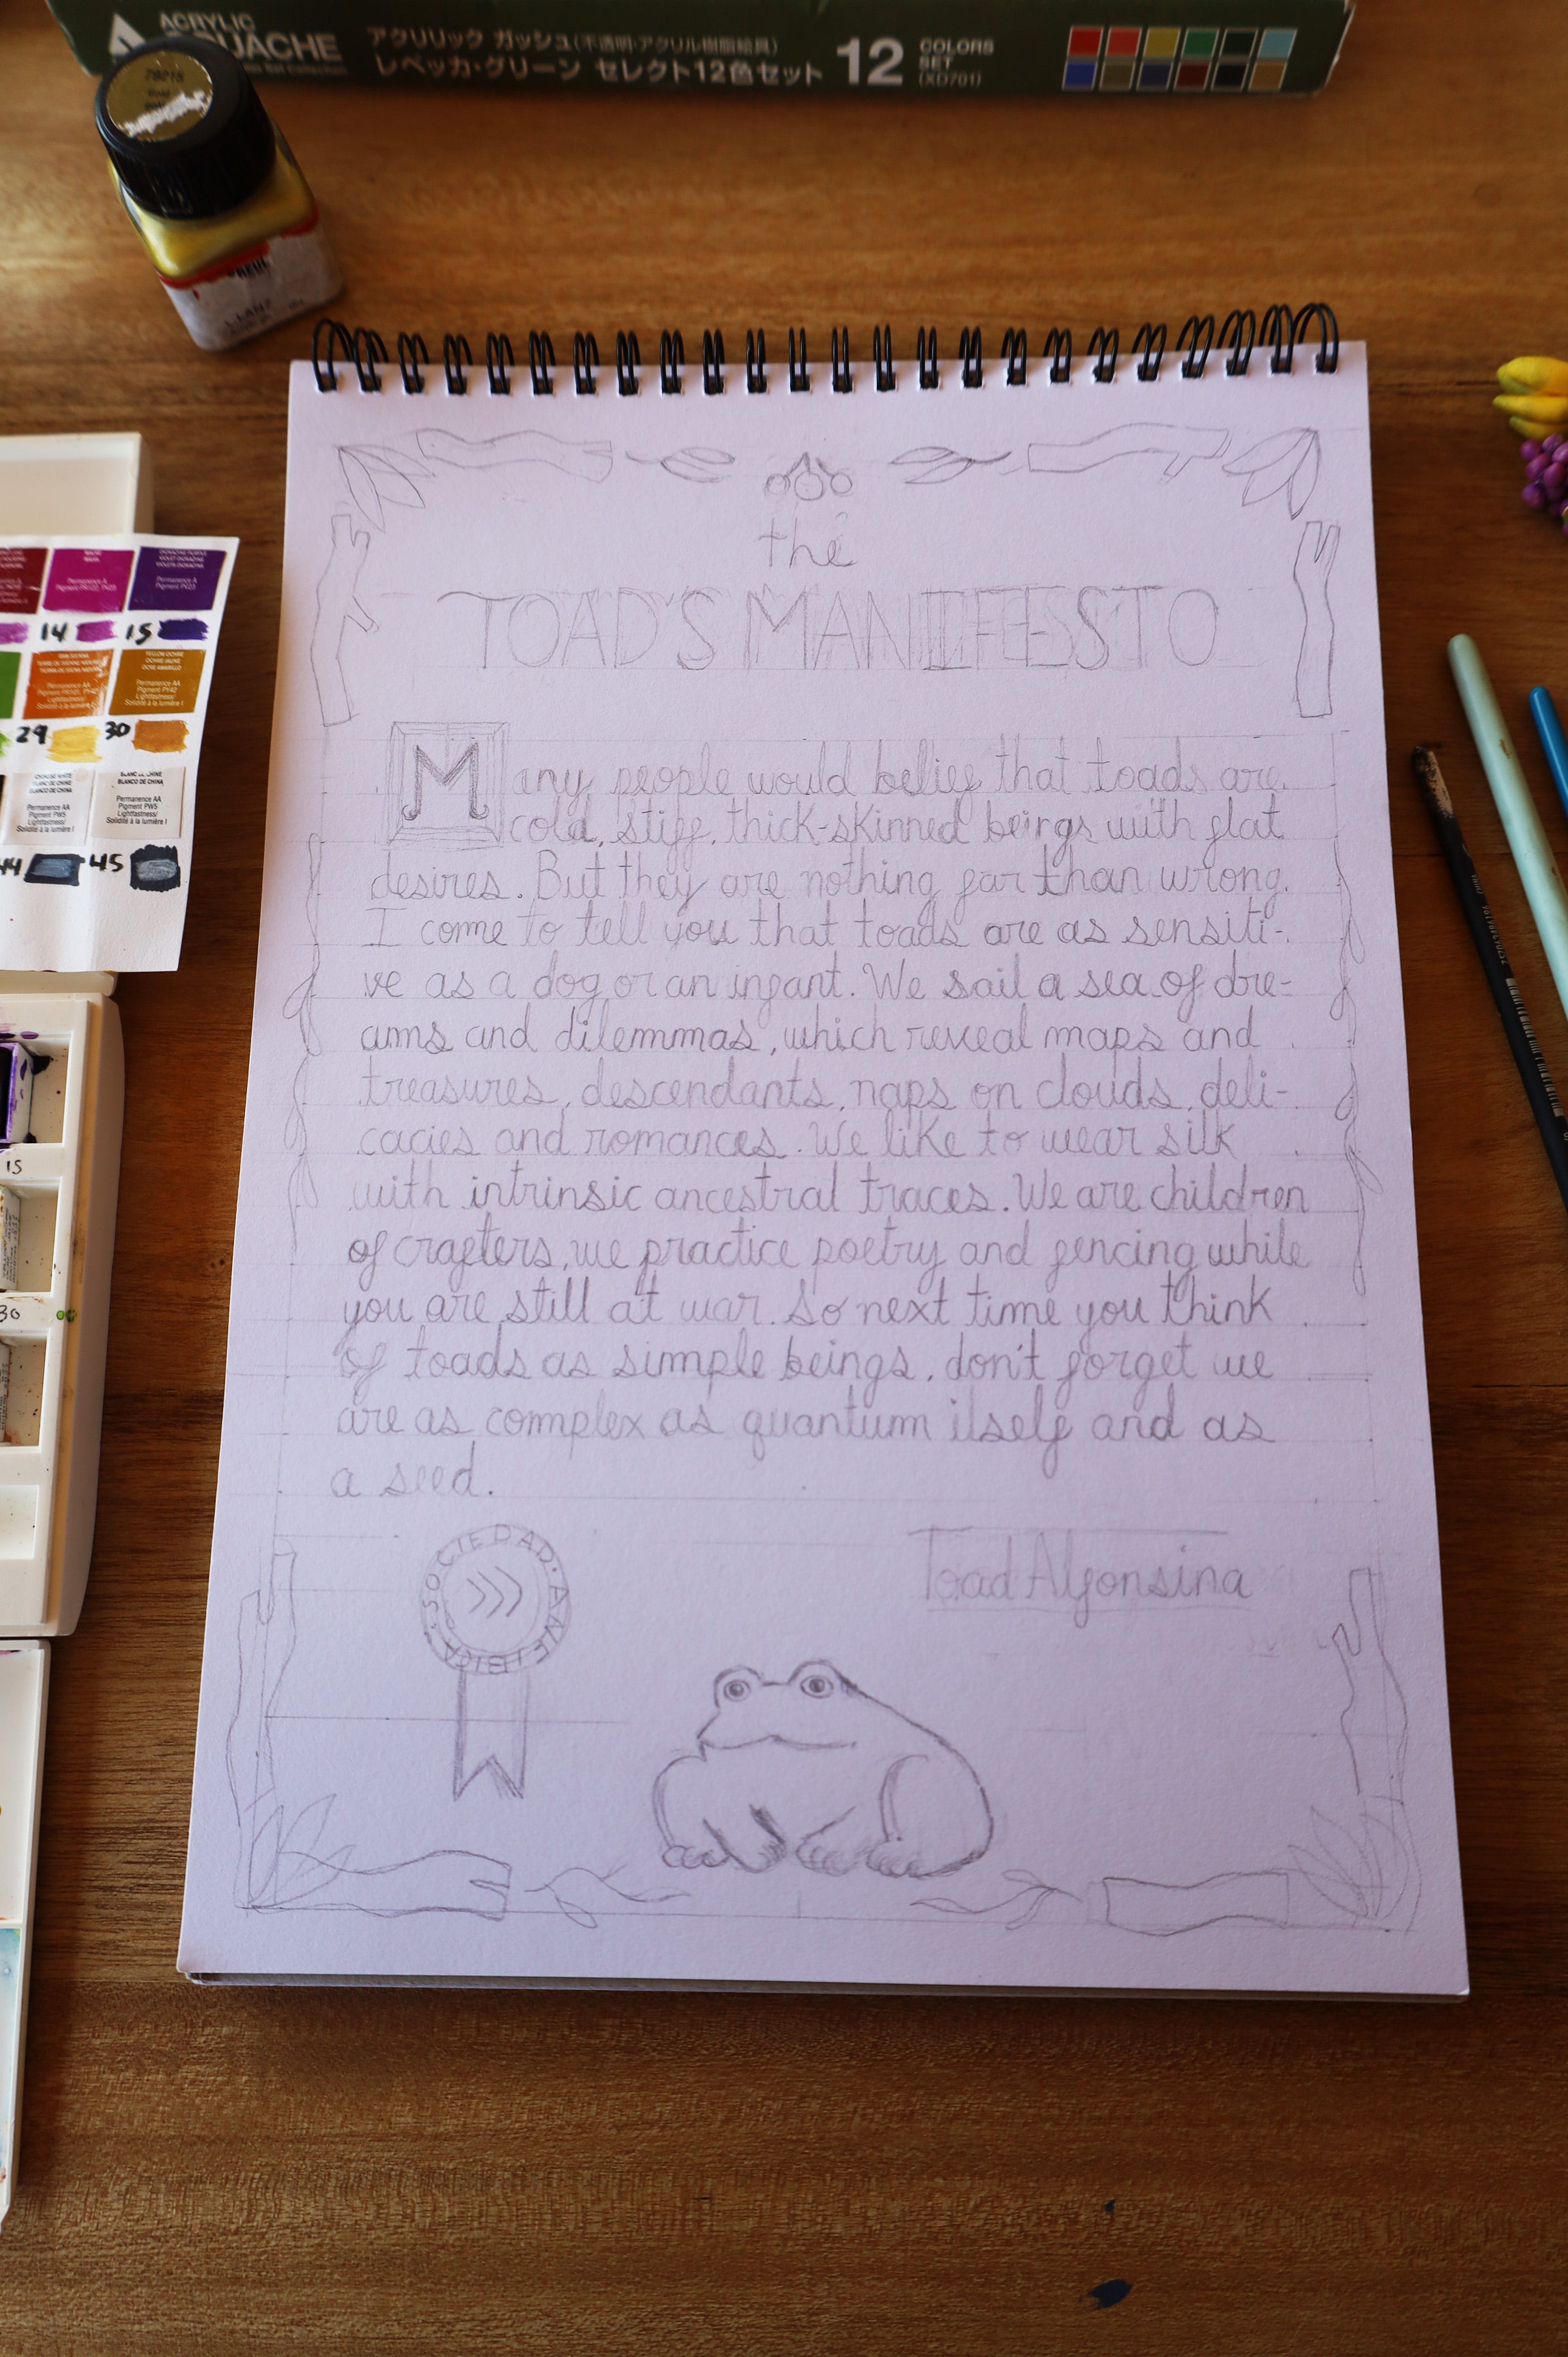 ACRYLIC
GOUACHE
アクリリック ガッシュ(不透明・アクリル樹脂絵具)
レベッカ・グリーン セレクト12色セット
12
COLORS
SET
(XD701)
29215
the
TOAD'S MANIFESTO
Many people would belief that toads are
cold, stiff, thick-skinned beings with flat
desires. But they are nothing far than wrong.
I come to tell you that toads are as sensiti-
ve as a dog or an infant. We sail a sea of dre-
ams and dilemmas, which reveal maps and
treasures, descendants, naps on clouds, deli-
cacies and romances. We like to wear silk
with intrinsic ancestral traces. We are children
of crafters, we practice poetry and fencing while
you are still at war. So next time you think
of toads as simple beings, don't forget we
are as complex as quantum itself and as
a seed.
SOCIEDAD · ANFIBIA ·
Toad Alfonsina
Permanence A
Permanence A
14
15
Permanence AA
Permanence AA
Pigment PY42
Lightfastness/
Solidité à la lumière I
29
30
BLANCO DE CHINA
BLANCO DE CHINA
Permanence AA
Pigment PW5
Lightfastness/
Solidité à la lumière I
Permanence AA
Pigment PW5
Lightfastness/
Solidité à la lumière I
44
45
15
30